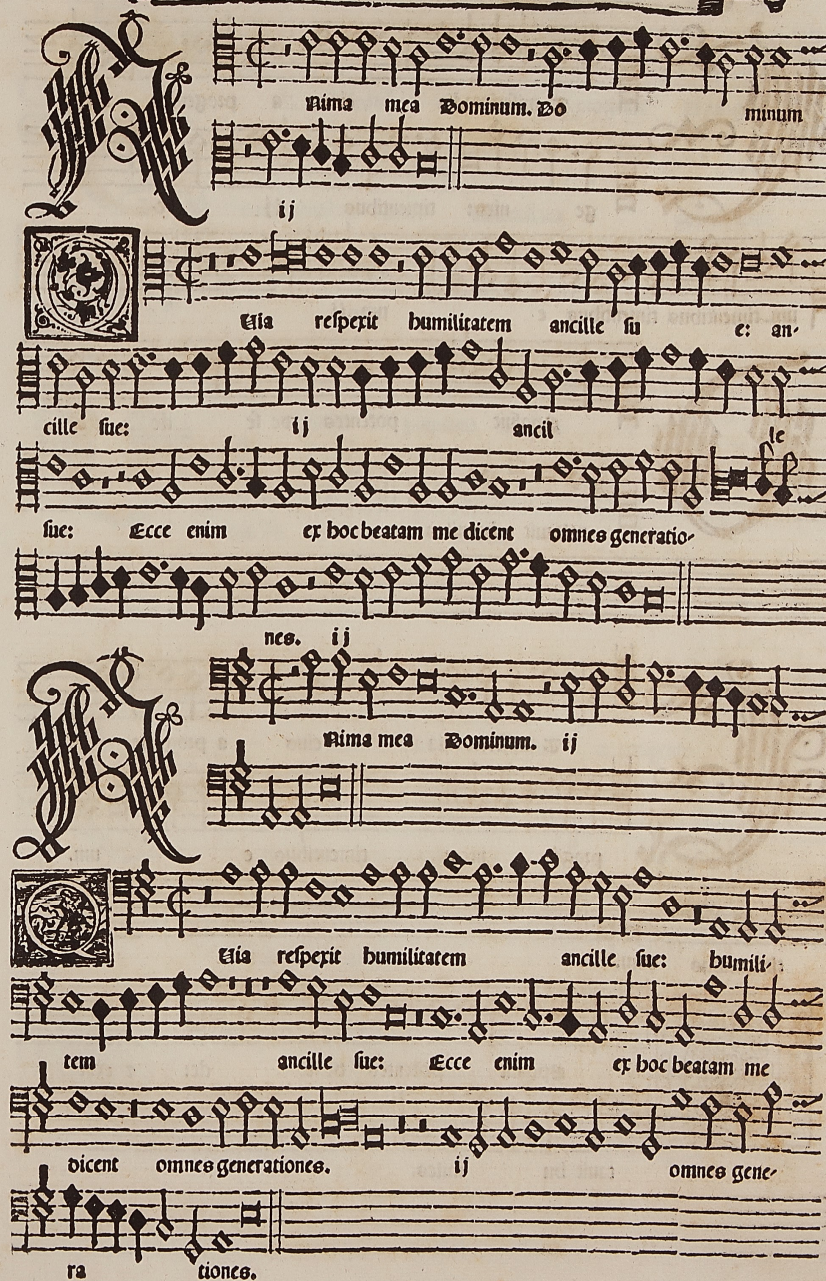 Anima mea Dominum. Do minum
ij
Quia respexit humilitatem ancille su e: an-
cille sue: ij ancil le
sue: Ecce enim ex hoc beatam me dicent omnes generatio-
nes. ij
Anima mea Dominum. ij
Quia respexit humilitatem ancille sue: humili-
tem ancille sue: Ecce enim ex hoc beatam me
dicent omnes generationes. ij omnes gene-
ra tiones.